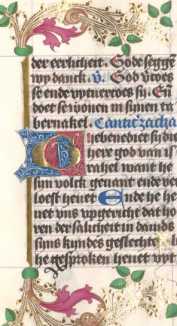 der eerlicheit. Gode segge
wy danck. v. God vroes
se ende vptuerroes sy. En
doet se wonen in sinen ta
bernakel. Cantic zacha
Ghebenedict si di
here god van is
rahel want he
sijn volck ende ver
loest heuet Ende he he
uet vns vpgericht dat ho
ren der salicheit in
sijns kyndes geslechte
he gesproken heuet